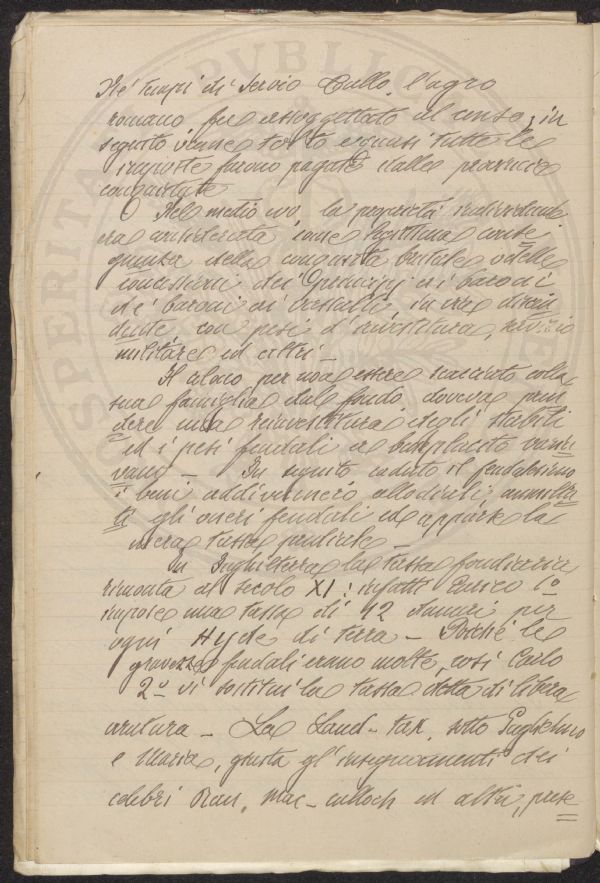 Ne' tempi di Servio Tullo, l'agro
romano fu assoggettato al censo; in
seguito venne tolto e quasi tutte le
imposte furono pagate dalle provincie
conquistate
Nel medio evo la proprietà individuale
era considerata come legittima conse
guenza della conquista brutale o delle
concessioni dei principj ai baroni
de' baroni ai vassalli, in via discen
dente con pesi d'investitura, servizio
militare ed altri —
Il colono per non essere scacciato colla
sua famiglia dal fondo, doveva pren
dere una reinvestitura degli stabili
ed i pesi feudali a beneplacito
In seguito caduto il feudalismo
i beni addivennero allodiali,
gli oneri feudali ed apparse la
vera tassa prediale —
In Inghilterra la tassa fondiaria
rimonta al secolo XI: infatti Enrico 1º
impose una tassa di 12 denari per
ogni Hyde di terra — Poichè le
gravezze feudali erano molte, così Carlo
2º vi sostituì la tassa detta di libera
aratura — La Land-tax, sotto Guglielmo
e Maria, giusta gl'insegnamenti dei
celebri Rau, Mac-culloch ed altri, prese
PUBLIC